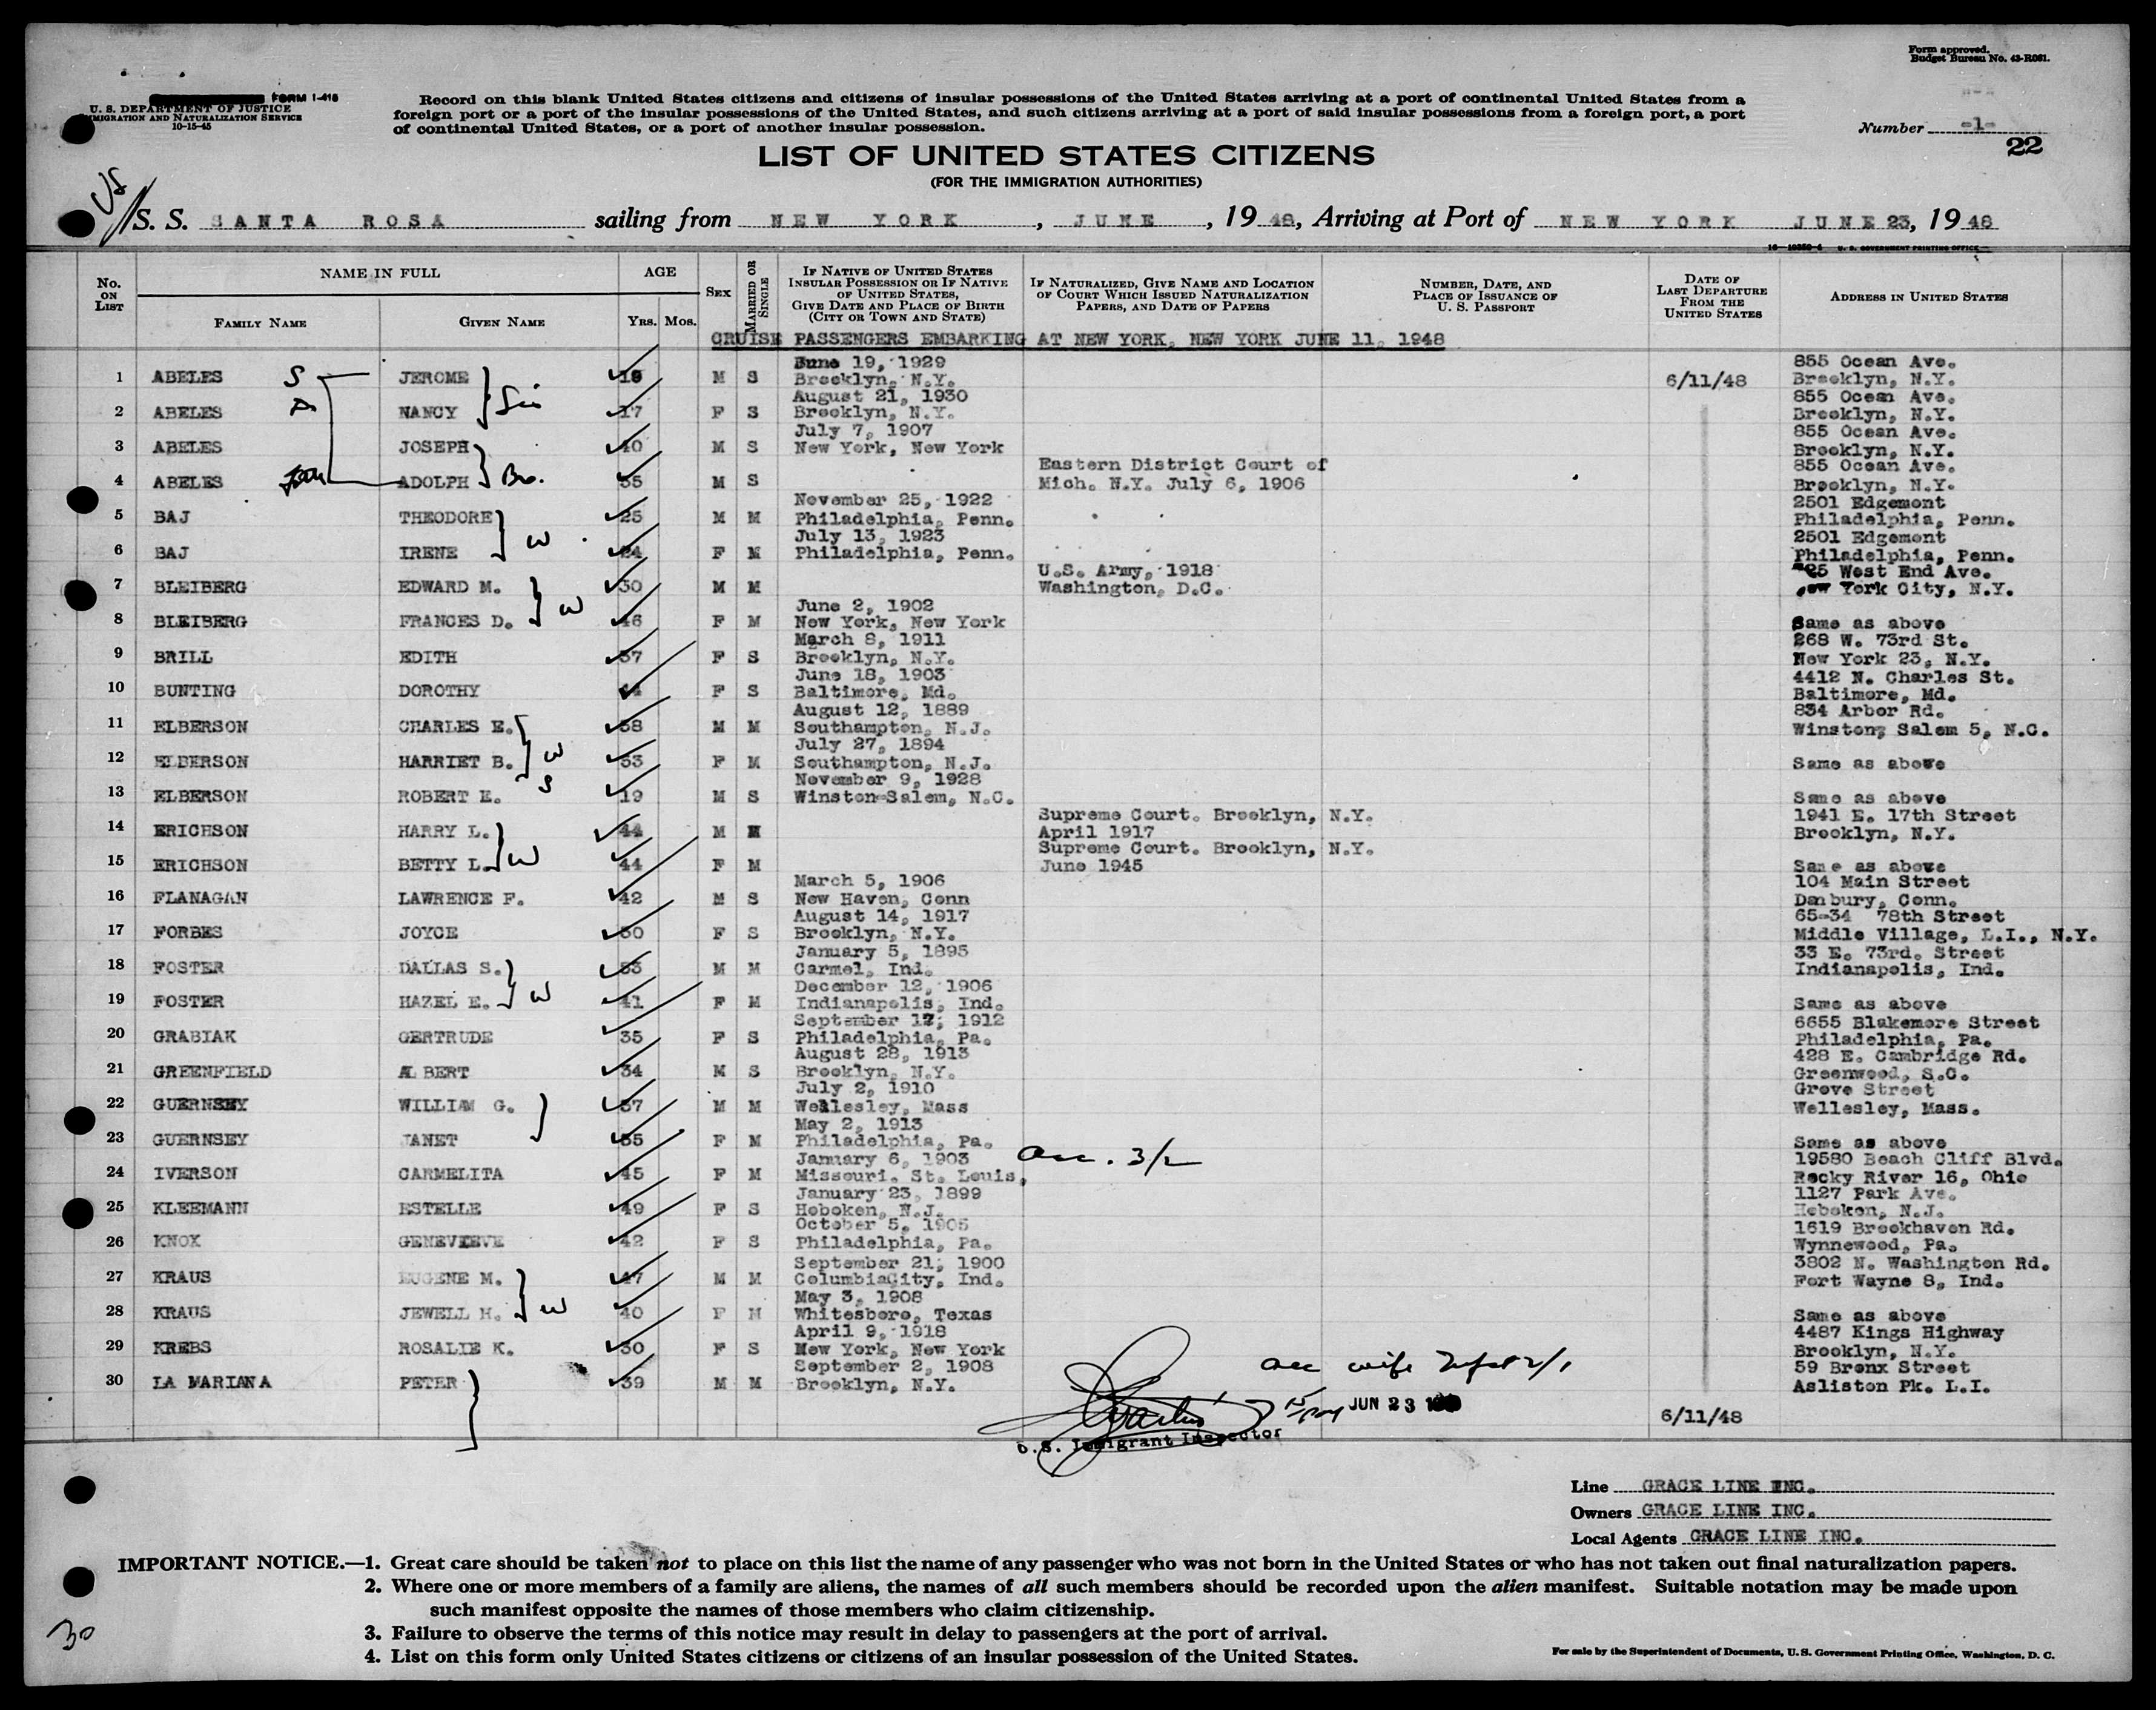 Form approved.
Budget Bureau No. 43-R061.
FORM I-415
U. S. DEPARTMENT OF JUSTICE
IMMIGRATION AND NATURALIZATION SERVICE
10-15-45
Record on this blank United States citizens and citizens of insular possessions of the United States arriving at a port of continental United States from a
foreign port or a port of the insular possessions of the United States, and such citizens arriving at a port of said insular possessions from a foreign port, a port
of continental United States, or a port of another insular possession.
Number -1-
22
LIST OF UNITED STATES CITIZENS
(FOR THE IMMIGRATION AUTHORITIES)
US
S. S. SANTA ROSA sailing from NEW YORK, JUNE, 19 48, Arriving at Port of NEW YORK JUNE 23, 19 48
U. S. GOVERNMENT PRINTING OFFICE
No. ON LIST
NAME IN FULL
FAMILY NAME
GIVEN NAME
AGE
Yrs. Mos.
SEX
MARRIED OR SINGLE
IF NATIVE OF UNITED STATES INSULAR POSSESSION OR IF NATIVE OF UNITED STATES, GIVE DATE AND PLACE OF BIRTH (CITY OR TOWN AND STATE)
IF NATURALIZED, GIVE NAME AND LOCATION OF COURT WHICH ISSUED NATURALIZATION PAPERS, AND DATE OF PAPERS
NUMBER, DATE, AND PLACE OF ISSUANCE OF U. S. PASSPORT
DATE OF LAST DEPARTURE FROM THE UNITED STATES
ADDRESS IN UNITED STATES
CRUISE PASSENGERS EMBARKING AT NEW YORK, NEW YORK JUNE 11, 1948
June 19, 1929 855 Ocean Ave.
1 ABELES S JEROME M S Brooklyn, N.Y. 6/11/48 Brooklyn, N.Y.
August 21, 1930 855 Ocean Ave.
2 ABELES NANCY Sis 17 F S Brooklyn, N.Y. Brooklyn, N.Y.
July 7, 1907 855 Ocean Ave.
3 ABELES JOSEPH 40 M S New York, New York Brooklyn, N.Y.
Eastern District Court of 855 Ocean Ave.
4 ABELES ADOLPH Bro. 55 M S Mich. N.Y. July 6, 1906 Brooklyn, N.Y.
November 25, 1922 2501 Edgemont
5 BAJ THEODORE 25 M M Philadelphia, Penn. Philadelphia, Penn.
July 13, 1923 2501 Edgemont
6 BAJ IRENE W 24 F M Philadelphia, Penn. Philadelphia, Penn.
U.S. Army, 1918 West End Ave.
7 BLEIBERG EDWARD M. 50 M M Washington, D.C. York City, N.Y.
June 2, 1902
8 BLEIBERG FRANCES D. W 46 F M New York, New York Same as above
March 8, 1911 268 W. 73rd St.
9 BRILL EDITH 37 F S Brooklyn, N.Y. New York 23, N.Y.
June 18, 1903 4412 N. Charles St.
10 BUNTING DOROTHY 44 F S Baltimore, Md. Baltimore, Md.
August 12, 1889 834 Arbor Rd.
11 ELBERSON CHARLES E. 58 M M Southampton, N.J. Winston, Salem 5, N.C.
July 27, 1894
12 ELBERSON HARRIET B. W 53 F M Southampton, N.J. Same as above
November 9, 1928
13 ELBERSON ROBERT E. S 19 M S Winston-Salem, N.C. Same as above
Supreme Court. Brooklyn, N.Y. 1941 E. 17th Street
14 ERICHSON HARRY L. 44 M M April 1917 Brooklyn, N.Y.
Supreme Court. Brooklyn, N.Y.
15 ERICHSON BETTY L. W 44 F M June 1945 Same as above
March 5, 1906 104 Main Street
16 FLANAGAN LAWRENCE F. 42 M S New Haven, Conn Danbury, Conn.
August 14, 1917 65-34 78th Street
17 FORBES JOYCE 30 F S Brooklyn, N.Y. Middle Village, L.I., N.Y.
January 5, 1895 33 E. 73rd. Street
18 FOSTER DALLAS S. 53 M M Carmel, Ind. Indianapolis, Ind.
December 12, 1906
19 FOSTER HAZEL E. W 41 F M Indianapolis, Ind. Same as above
September 17, 1912 6655 Blakemore Street
20 GRABIAK GERTRUDE 35 F S Philadelphia, Pa. Philadelphia, Pa.
August 28, 1913 428 E. Cambridge Rd.
21 GREENFIELD ALBERT 34 M S Brooklyn, N.Y. Greenwood, S.C.
July 2, 1910 Grove Street
22 GUERNSEY WILLIAM G. 37 M M Wellesley, Mass Wellesley, Mass.
May 2, 1913
23 GUERNSEY JANET 35 F M Philadelphia, Pa. Same as above
January 6, 1903 acc. 3/2 19580 Beach Cliff Blvd.
24 IVERSON CARMELITA 45 F M Missouri. St. Louis, Rocky River 16, Ohio
January 23, 1899 1127 Park Ave.
25 KLEEMANN ESTELLE 49 F S Hoboken, N.J. Hoboken, N.J.
October 5, 1905 1619 Brookhaven Rd.
26 KNOX GENEVIEVE 42 F S Philadelphia, Pa. Wynnewood, Pa.
September 21, 1900 3802 N. Washington Rd.
27 KRAUS EUGENE M. 47 M M ColumbiaCity, Ind. Fort Wayne 8, Ind.
May 3, 1908
28 KRAUS JEWELL H. W 40 F M Whitesboro, Texas Same as above
April 9, 1918 4487 Kings Highway
29 KREBS ROSALIE K. 30 F S New York, New York Brooklyn, N.Y.
September 2, 1908 acc wife 2/1 59 Bronx Street
30 LA MARIANA PETER 39 M M Brooklyn, N.Y. Asliston Pk. L.I.
JUN 23
6/11/48
U.S. Immigrant Inspector
Line GRACE LINE INC.
Owners GRACE LINE INC.
Local Agents GRACE LINE INC.
IMPORTANT NOTICE.—1. Great care should be taken not to place on this list the name of any passenger who was not born in the United States or who has not taken out final naturalization papers.
2. Where one or more members of a family are aliens, the names of all such members should be recorded upon the alien manifest. Suitable notation may be made upon
such manifest opposite the names of those members who claim citizenship.
3. Failure to observe the terms of this notice may result in delay to passengers at the port of arrival.
4. List on this form only United States citizens or citizens of an insular possession of the United States.
For sale by the Superintendent of Documents, U. S. Government Printing Office, Washington, D. C.
30